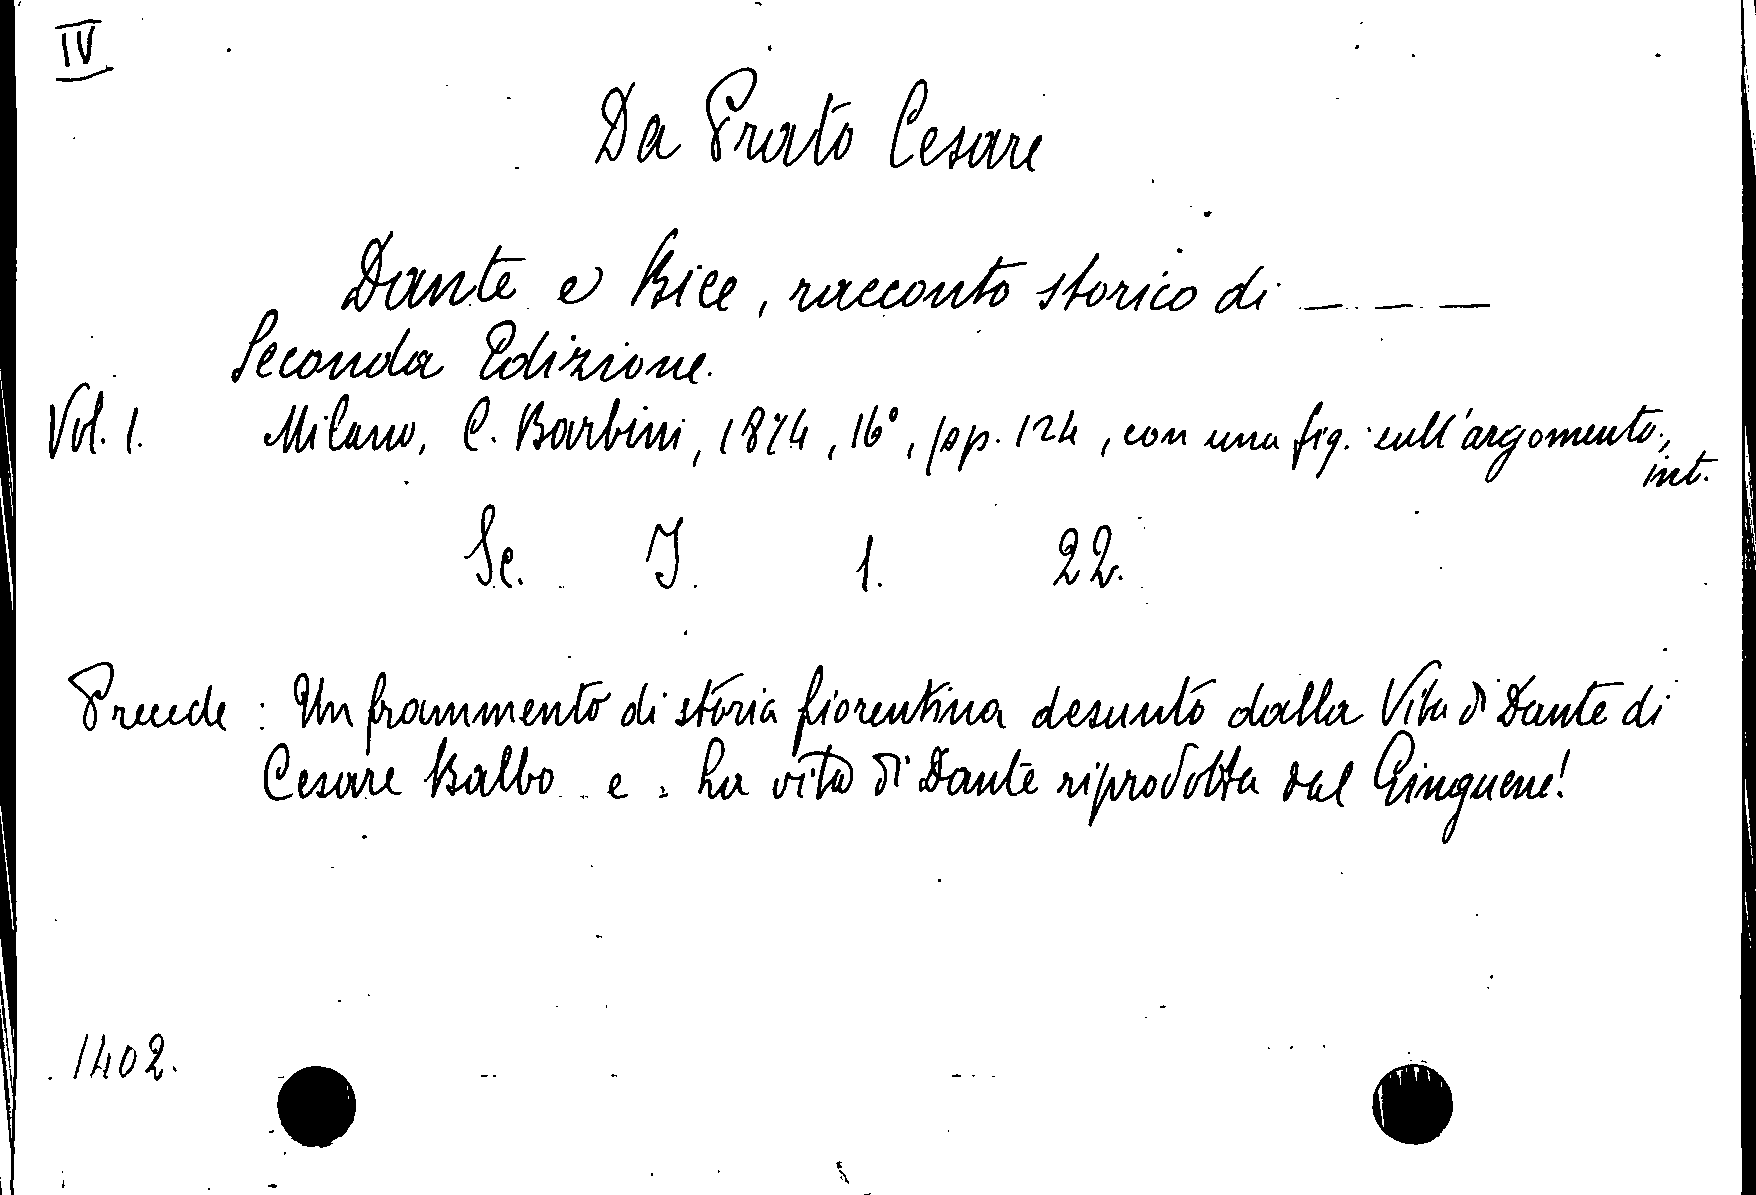 IV
Da Prato Cesare
Dante e Bice, racconto storico di _ _ _
Seconda Edizione.
Vol. 1. Milano, C. Barbini, 1874, 16°, pp. 124, con una fig. sull'argomento,
int.
Sc. I. 1. 22.
Precede: Un frammento di storia fiorentina desunto dalla Vita di Dante di
Cesare Balbo e: La vita di Dante riprodotta dal Ginguené!
1402.